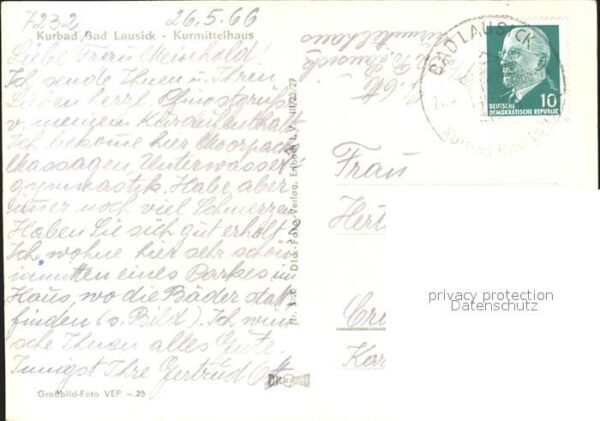 7232 26.5.66
Kurbad Bad Lausick - Kurmittelhaus
Liebe Frau Meinhold!
Ich sende Ihnen u. Ihren
Lieben herzl. Pfingstgrüße
v. meinem Kuraufenthalt
Ich bekome hier Moorpack
Massagen, Unterwasser
gymnastik. Habe aber
immer noch viel Schmerzen
Haben Sie sich gut erholt
Ich wohne hier sehr schön
inmitten eines Parkes im
Haus, wo die Bäder statt
finden (s. Bild). Ich wün
sche Ihnen alles Gute.
Innigst Ihre Gertrud Ott
Großbild-Foto VEP -.25
Dick-Foto-Verlag, Erlbach i. V.
Kurmittelhaus
BAD LAUSICK
Kurbad Bad
DEUTSCHE
DEMOKRATISCHE REPUBLIK
10
Frau
Hert
privacy protection
Datenschutz